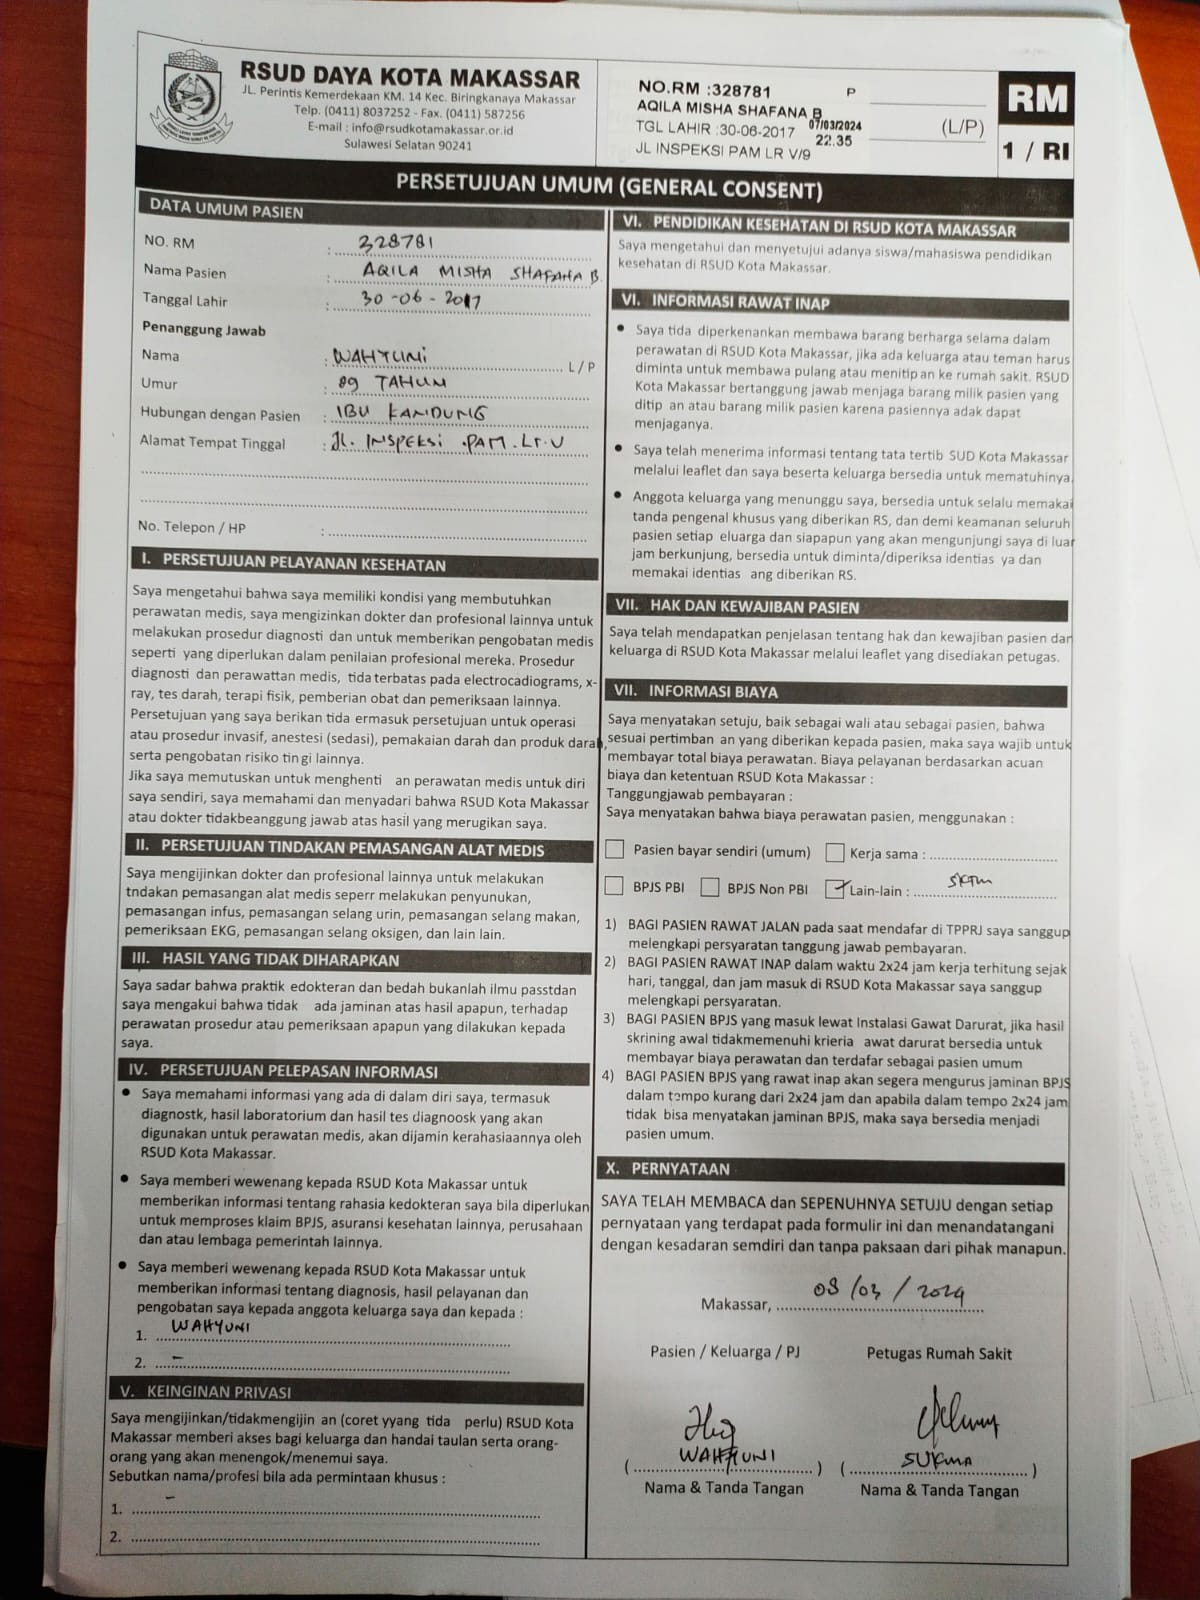 RSUD DAYA KOTA MAKASSAR
JL. Perintis Kemerdekaan KM. 14 Kec. Biringkanaya Makassar
Telp. (0411) 8037252 - Fax. (0411) 587256
E-mail : info@rsudkotamakassar.or.id
Sulawesi Selatan 90241
NO.RM :328781 P
AQILA MISHA SHAFANA B
TGL LAHIR :30-06-2017 07/03/2024
22.35
JL INSPEKSI PAM LR V/9
(L/P)
RM
1 / RI
PERSETUJUAN UMUM (GENERAL CONSENT)
DATA UMUM PASIEN
NO. RM : 328781
Nama Pasien : AQILA MISHA SHAFANA B.
Tanggal Lahir : 30-06-2017
Penanggung Jawab
Nama : WAHYUNI L / P
Umur : 89 TAHUN
Hubungan dengan Pasien : IBU KANDUNG
Alamat Tempat Tinggal : JL. INSPEKSI .PAM.Lr.V
No. Telepon / HP :
I. PERSETUJUAN PELAYANAN KESEHATAN
Saya mengetahui bahwa saya memiliki kondisi yang membutuhkan
perawatan medis, saya mengizinkan dokter dan profesional lainnya untuk
melakukan prosedur diagnosti dan untuk memberikan pengobatan medis
seperti yang diperlukan dalam penilaian profesional mereka. Prosedur
diagnosti dan perawattan medis, tida terbatas pada electrocadiograms, x-
ray, tes darah, terapi fisik, pemberian obat dan pemeriksaan lainnya.
Persetujuan yang saya berikan tida ermasuk persetujuan untuk operasi
atau prosedur invasif, anestesi (sedasi), pemakaian darah dan produk darah,
serta pengobatan risiko tin gi lainnya.
Jika saya memutuskan untuk menghenti an perawatan medis untuk diri
saya sendiri, saya memahami dan menyadari bahwa RSUD Kota Makassar
atau dokter tidakbeanggung jawab atas hasil yang merugikan saya.
II. PERSETUJUAN TINDAKAN PEMASANGAN ALAT MEDIS
Saya mengijinkan dokter dan profesional lainnya untuk melakukan
tndakan pemasangan alat medis seperr melakukan penyunukan,
pemasangan infus, pemasangan selang urin, pemasangan selang makan,
pemeriksaan EKG, pemasangan selang oksigen, dan lain lain.
III. HASIL YANG TIDAK DIHARAPKAN
Saya sadar bahwa praktik edokteran dan bedah bukanlah ilmu passtdan
saya mengakui bahwa tidak ada jaminan atas hasil apapun, terhadap
perawatan prosedur atau pemeriksaan apapun yang dilakukan kepada
saya.
IV. PERSETUJUAN PELEPASAN INFORMASI
• Saya memahami informasi yang ada di dalam diri saya, termasuk
diagnostk, hasil laboratorium dan hasil tes diagnoosk yang akan
digunakan untuk perawatan medis, akan dijamin kerahasiaannya oleh
RSUD Kota Makassar.
• Saya memberi wewenang kepada RSUD Kota Makassar untuk
memberikan informasi tentang rahasia kedokteran saya bila diperlukan
untuk memproses klaim BPJS, asuransi kesehatan lainnya, perusahaan
dan atau lembaga pemerintah lainnya.
• Saya memberi wewenang kepada RSUD Kota Makassar untuk
memberikan informasi tentang diagnosis, hasil pelayanan dan
pengobatan saya kepada anggota keluarga saya dan kepada :
1. WAHYUNI
2. -
V. KEINGINAN PRIVASI
Saya mengijinkan/tidakmengijin an (coret yyang tida perlu) RSUD Kota
Makassar memberi akses bagi keluarga dan handai taulan serta orang-
orang yang akan menengok/menemui saya.
Sebutkan nama/profesi bila ada permintaan khusus :
1. -
2.
VI. PENDIDIKAN KESEHATAN DI RSUD KOTA MAKASSAR
Saya mengetahui dan menyetujui adanya siswa/mahasiswa pendidikan
kesehatan di RSUD Kota Makassar.
VI. INFORMASI RAWAT INAP
• Saya tida diperkenankan membawa barang berharga selama dalam
perawatan di RSUD Kota Makassar, jika ada keluarga atau teman harus
diminta untuk membawa pulang atau menitip an ke rumah sakit. RSUD
Kota Makassar bertanggung jawab menjaga barang milik pasien yang
ditip an atau barang milik pasien karena pasiennya adak dapat
menjaganya.
• Saya telah menerima informasi tentang tata tertib SUD Kota Makassar
melalui leaflet dan saya beserta keluarga bersedia untuk mematuhinya.
• Anggota keluarga yang menunggu saya, bersedia untuk selalu memakai
tanda pengenal khusus yang diberikan RS, dan demi keamanan seluruh
pasien setiap eluarga dan siapapun yang akan mengunjungi saya di luar
jam berkunjung, bersedia untuk diminta/diperiksa identias ya dan
memakai identias ang diberikan RS.
VII. HAK DAN KEWAJIBAN PASIEN
Saya telah mendapatkan penjelasan tentang hak dan kewajiban pasien dan
keluarga di RSUD Kota Makassar melalui leaflet yang disediakan petugas.
VII. INFORMASI BIAYA
Saya menyatakan setuju, baik sebagai wali atau sebagai pasien, bahwa
sesuai pertimban an yang diberikan kepada pasien, maka saya wajib untuk
membayar total biaya perawatan. Biaya pelayanan berdasarkan acuan
biaya dan ketentuan RSUD Kota Makassar :
Tanggungjawab pembayaran :
Saya menyatakan bahwa biaya perawatan pasien, menggunakan :
Pasien bayar sendiri (umum) Kerja sama :
BPJS PBI BPJS Non PBI Lain-lain : SKTM
1) BAGI PASIEN RAWAT JALAN pada saat mendafar di TPPRJ saya sanggup
melengkapi persyaratan tanggung jawab pembayaran.
2) BAGI PASIEN RAWAT INAP dalam waktu 2x24 jam kerja terhitung sejak
hari, tanggal, dan jam masuk di RSUD Kota Makassar saya sanggup
melengkapi persyaratan.
3) BAGI PASIEN BPJS yang masuk lewat Instalasi Gawat Darurat, jika hasil
skrining awal tidakmemenuhi krieria awat darurat bersedia untuk
membayar biaya perawatan dan terdafar sebagai pasien umum
4) BAGI PASIEN BPJS yang rawat inap akan segera mengurus jaminan BPJS
dalam tempo kurang dari 2x24 jam dan apabila dalam tempo 2x24 jam
tidak bisa menyatakan jaminan BPJS, maka saya bersedia menjadi
pasien umum.
X. PERNYATAAN
SAYA TELAH MEMBACA dan SEPENUHNYA SETUJU dengan setiap
pernyataan yang terdapat pada formulir ini dan menandatangani
dengan kesadaran semdiri dan tanpa paksaan dari pihak manapun.
Makassar, 08/03/2024
Pasien / Keluarga / PJ Petugas Rumah Sakit
(WAHYUNI) (SUKMA)
Nama & Tanda Tangan Nama & Tanda Tangan